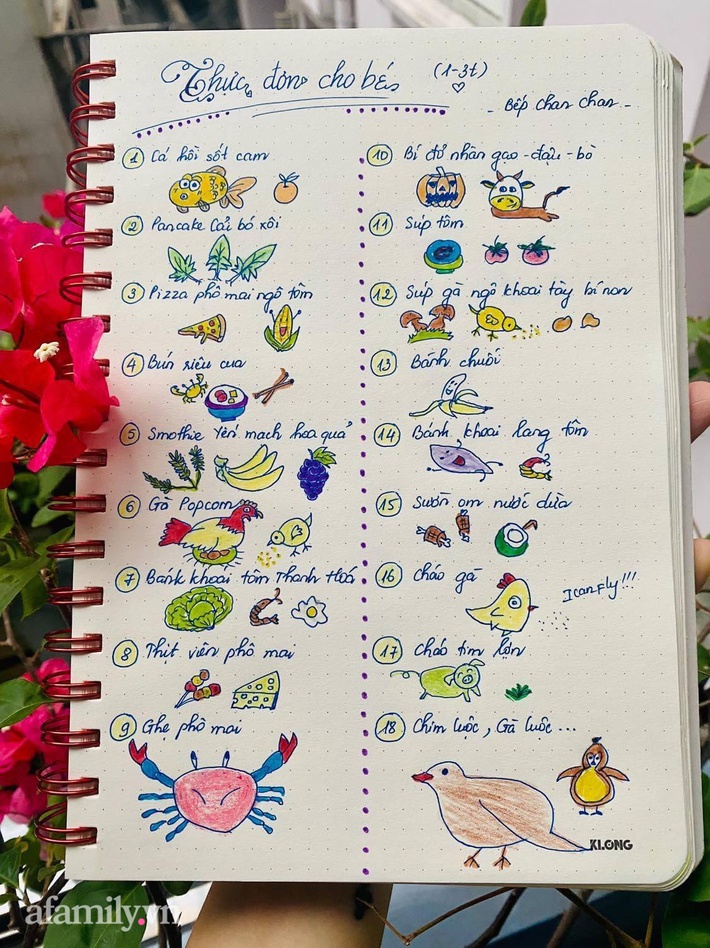 Thực đơn cho bé (1-3t)
- Bếp chan chan -
1 Cá hồi sốt cam
2 Pancake Cải bó xôi
3 Pizza phô mai ngô tôm
4 Bún riêu cua
5 Smothie Yến mạch hoa quả
6 Gà Popcorn
7 Bánh khoai tôm Thanh Hoá
8 Thịt viên phô mai
9 Ghẹ phô mai
10 Bí đỏ nhân gạo - đậu - bò
11 Súp tôm
12 Súp gà ngô khoai tây bí non
13 Bánh chuối
14 Bánh khoai lang tôm
15 Sườn om nước dừa
16 cháo gà
I can Fly!!!
17 Cháo tim lợn
18 Chim luộc, Gà luộc...
KLONG
afamily.vn